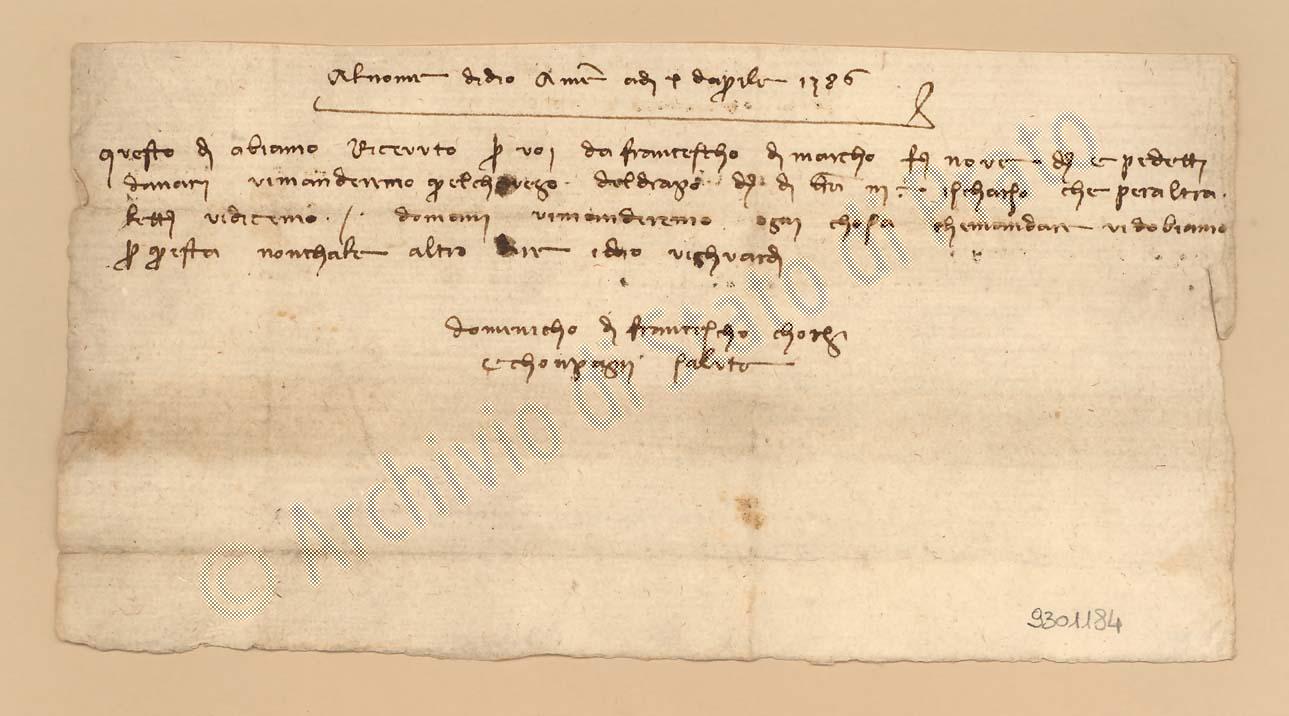 Al nome di dio Ame adi x daprile 1386
questo di abiamo Ricevuto p voi da francescho di marcho f nove e pedetti
danari vi manderemo di iii ischarso che per altra
lettera vi dicemo domani vi manderemo ogni chosa che mandare vi dobiamo
p questa non chale altro dire idio vi ghuardi
domenicho di francescho chorsi
e chonpagni salute
9301184
© Archivio di Stato di Prato